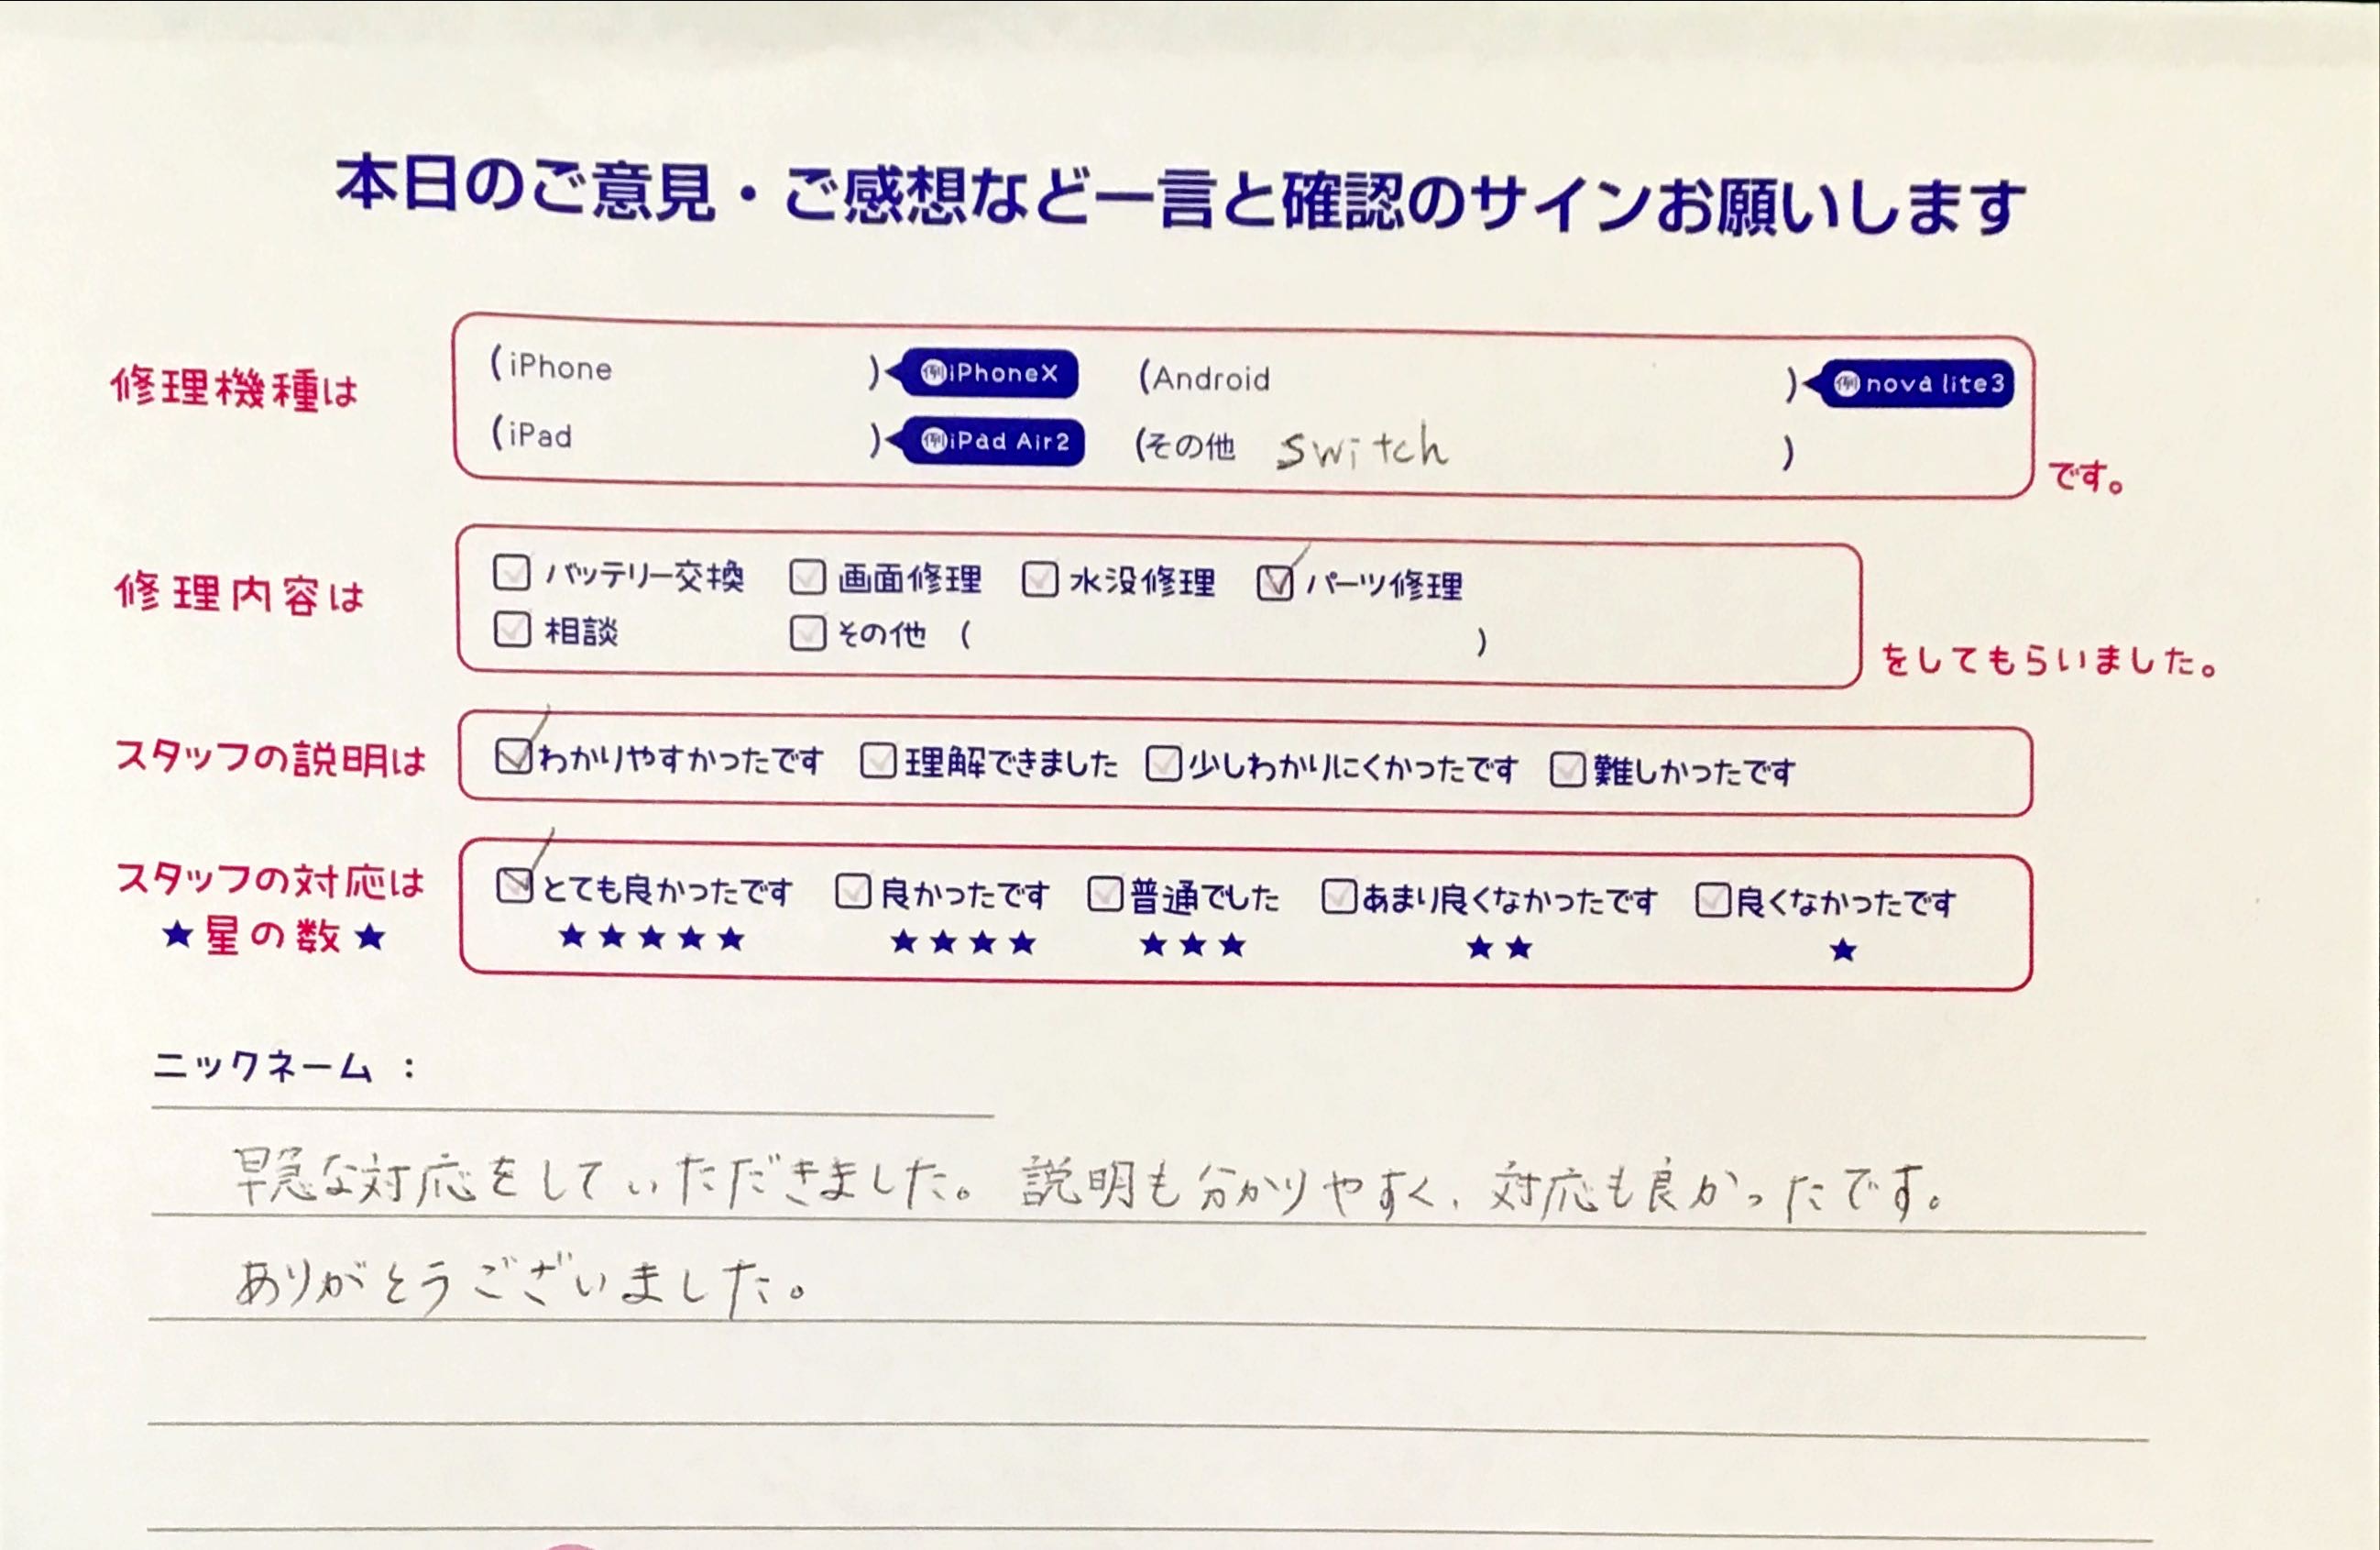 本日のご意見・ご感想など一言と確認のサインお願いします
修理機種は
(iPhone ) 例iPhoneX (Android ) 例nova lite3
(iPad ) 例iPad Air2 (その他 switch )
です。
修理内容は
バッテリー交換 画面修理 水没修理 パーツ修理
相談 その他 ( )
をしてもらいました。
スタッフの説明は
わかりやすかったです 理解できました 少しわかりにくかったです 難しかったです
スタッフの対応は
★星の数★
とても良かったです 良かったです 普通でした あまり良くなかったです 良くなかったです
★★★★★ ★★★★ ★★★ ★★ ★
ニックネーム :
早急な対応をしていただきました。説明も分かりやすく、対応も良かったです。
ありがとうございました。